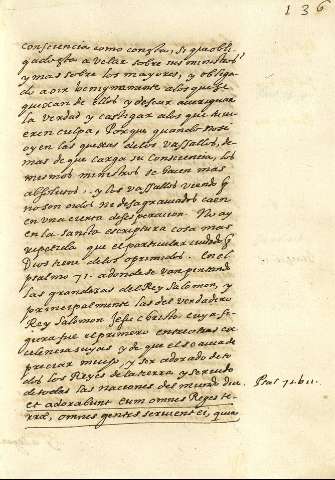 136
consciencia como consta, si que obli
gado esta a velar sobre sus ministros
y mas sobre los mayores, y obliga
do a oir benignamente a los que se
quexaren de ellos y desear averiguar
la verdad y castigar a los que tuvi
eren culpa, Porque quando no se
oyen las quexas de los vassallos, de
mas de que carga su consciencia, los
mesmos ministros se hacen mas
absolutos. y los vassallos viendo q̃
no son oidos ne desagraviados caen
en una cierta desesperacion. No ay
en la santa escriptura cosa mas
repetida que el particular cuidado q̃
Dios tiene de los oprimidos. En el
psalmo 71. adonde se van
las grandezas del Rey Salomon, y
principalmente las del verdadero
Rey Salomon Jesu Christo cuya fi
gura fue el primero entre otras ex
celencias suyas y de que el se avia de
preciar mucho y ser adorado de to
dos los Reyes de la tierra y servido
de todas las naciones del mundo
Psal 71.
et adorabunt eum omnes Reges te
rræ, omnes gentes servient ei, quia